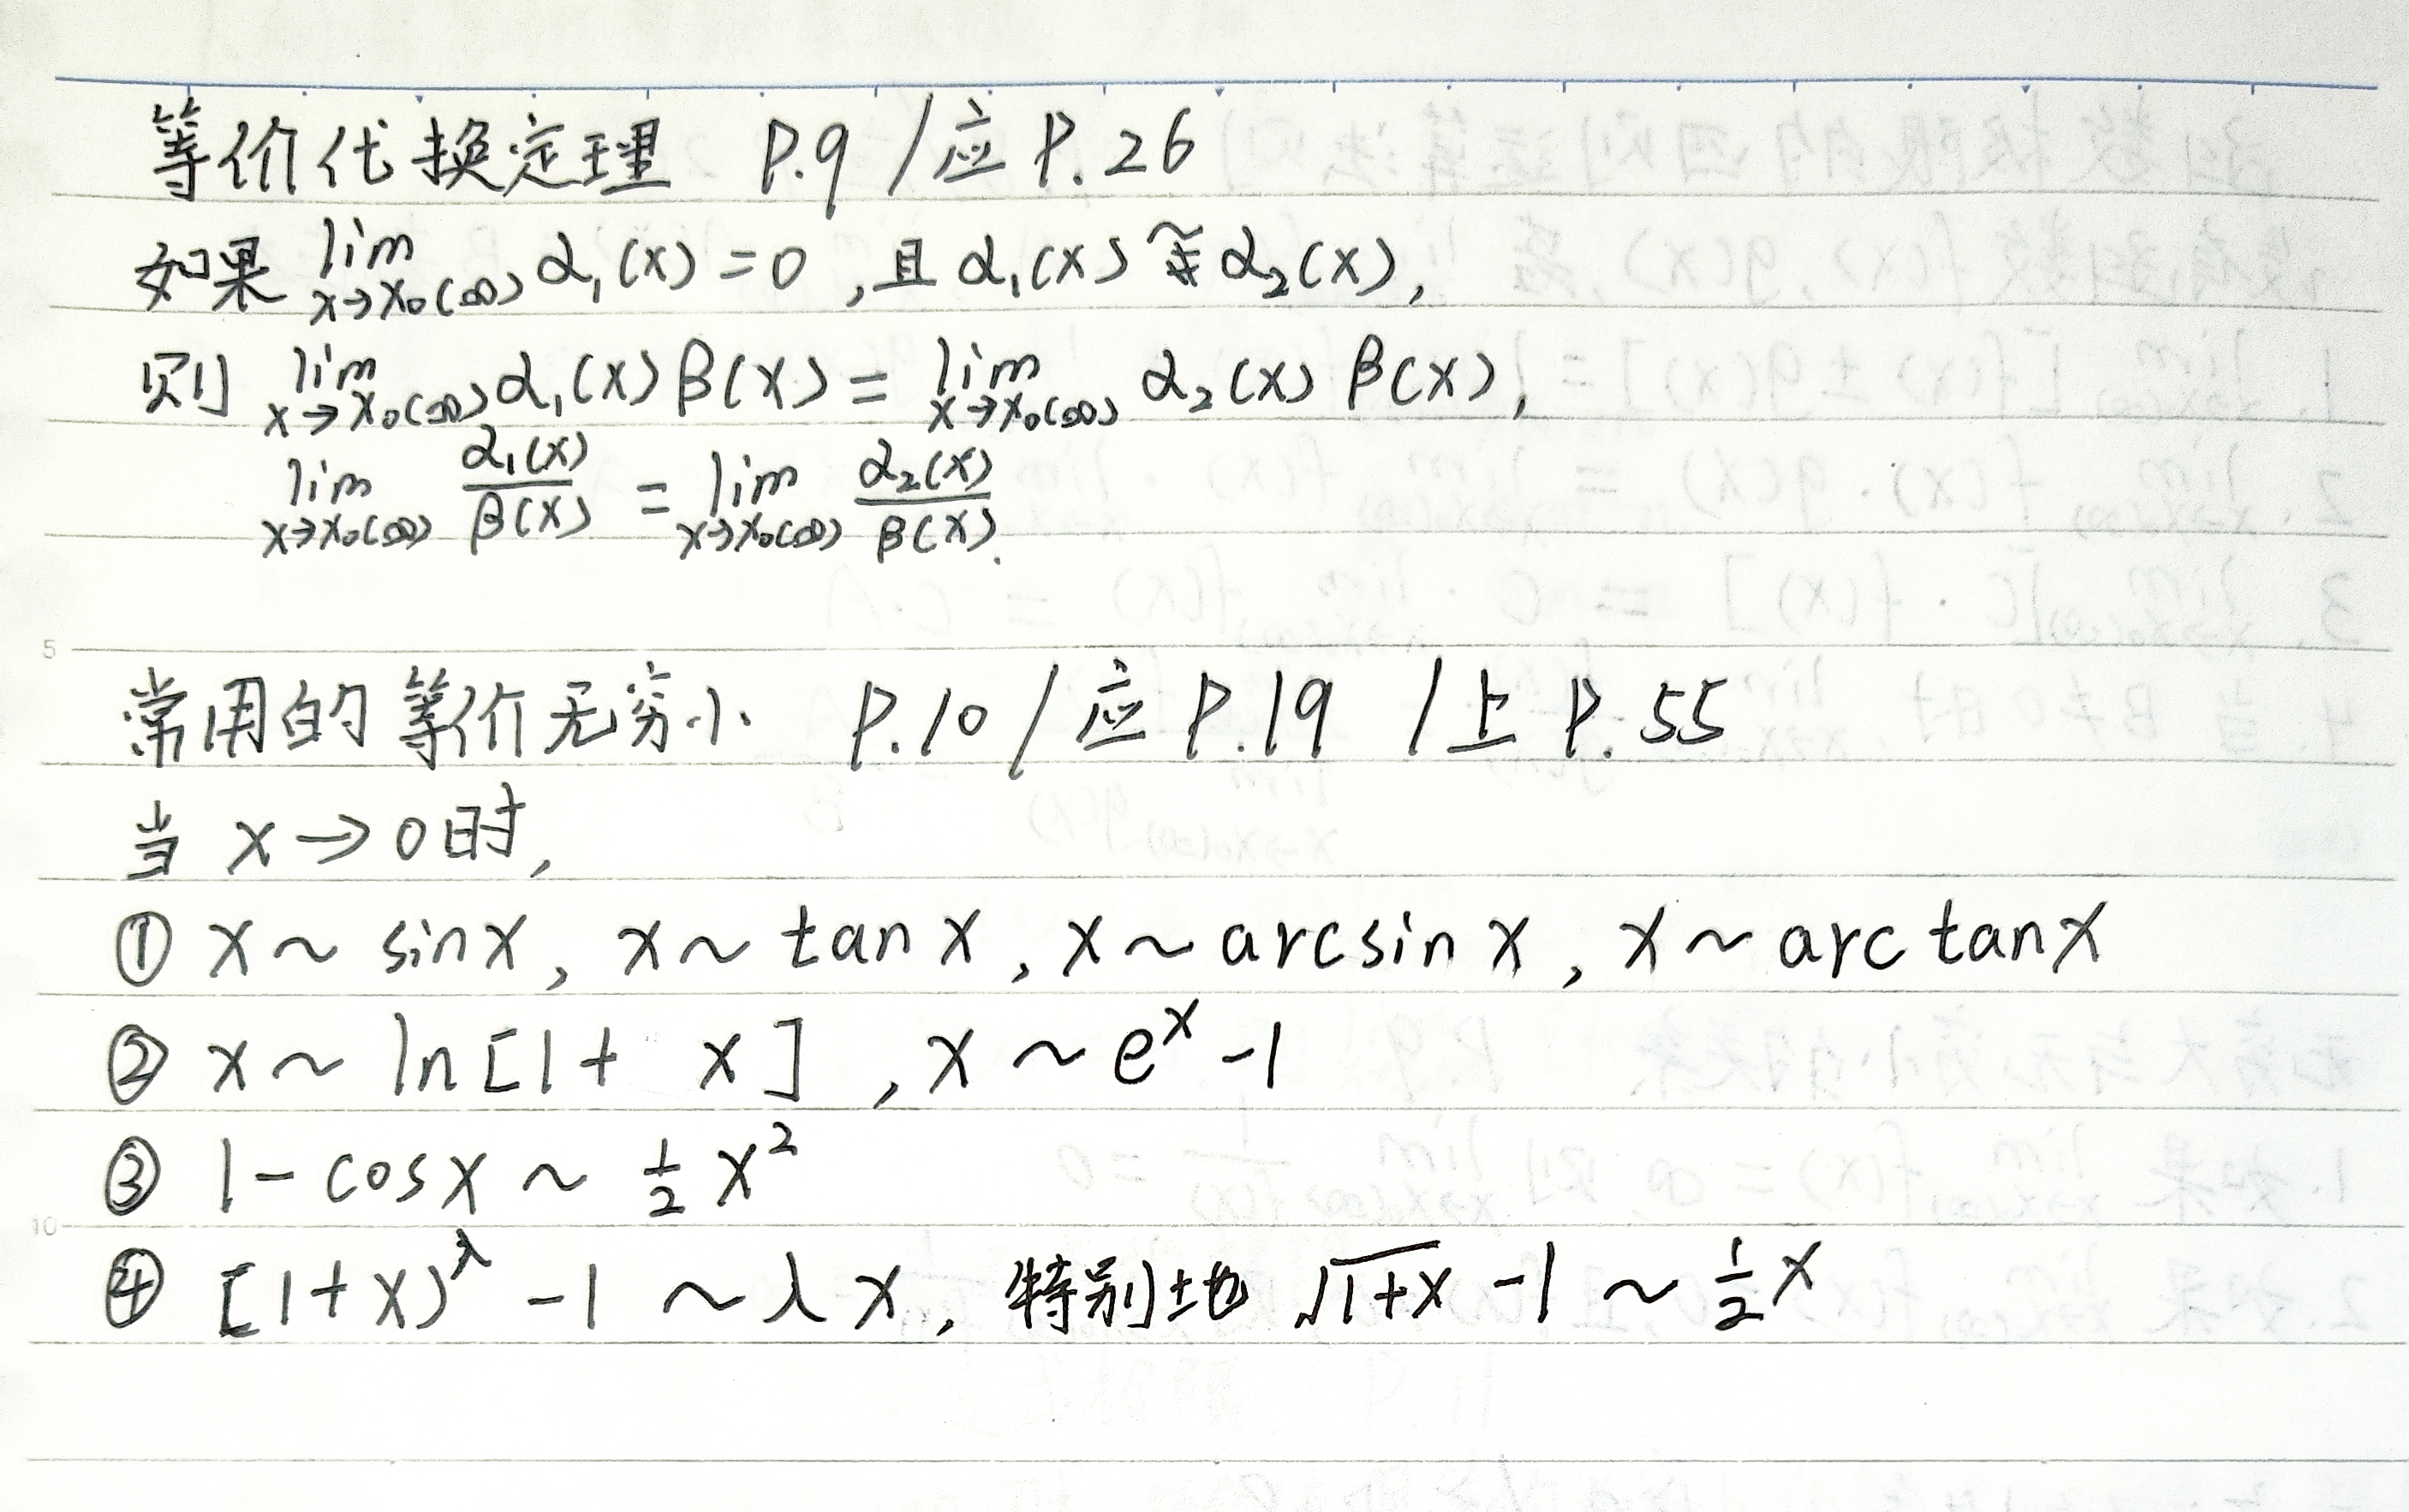 等价代换定理 P.9 /应P.26
如果 lim x→x₀(∞) α₁(x)=0,且α₁(x) ~ α₂(x),
则 lim x→x₀(∞) α₁(x)β(x) = lim x→x₀(∞) α₂(x)β(x),
lim x→x₀(∞) α₁(x)/β(x) = lim x→x₀(∞) α₂(x)/β(x).
5
常用的等价无穷小 P.10/应P.19 /上P.55
当 x→0时,
① x~sinx, x~tanx, x~arcsinx, x~arctanx
② x~ln[1+ x] , x~eˣ-1
③ 1-cosx~½x²
10
④ [1+x)^λ -1 ~λx, 特别地 √(1+x) -1~½x